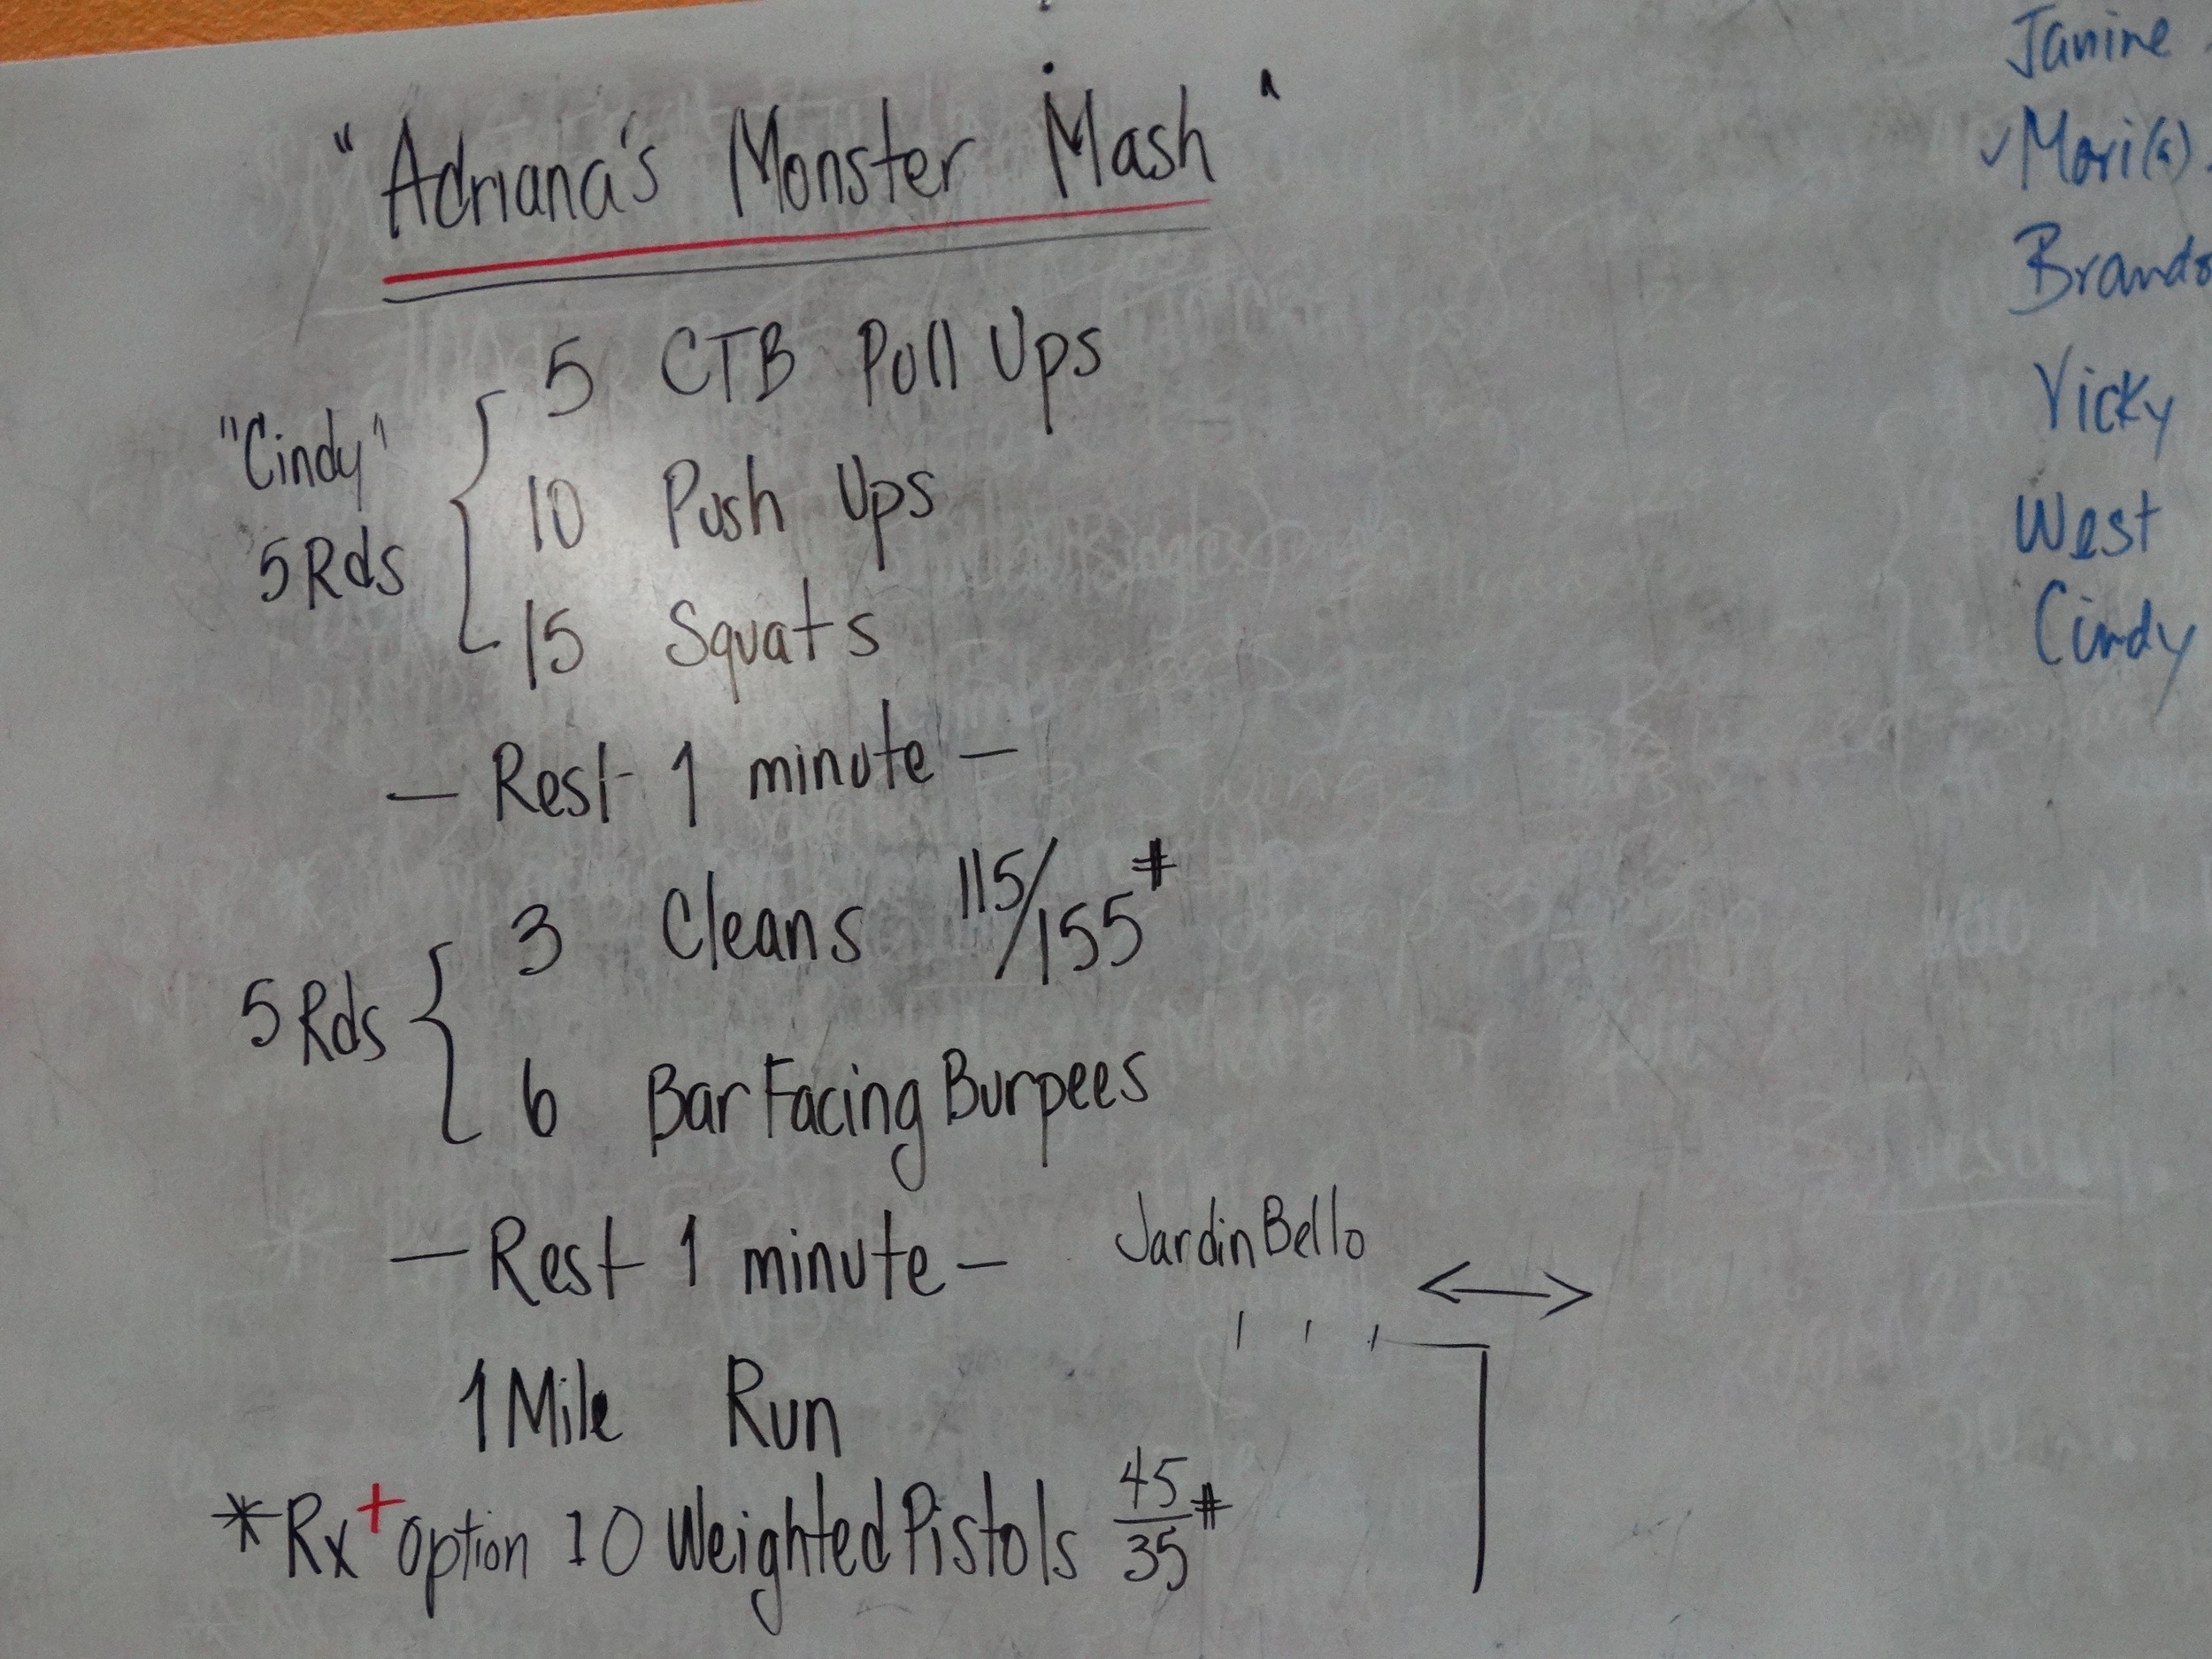 "Adriana's Monster Mash"
5 CTB Pull Ups
"Cindy"
10 Push Ups
5 Rds
15 Squats
— Rest 1 minute —
3 Cleans 115/155#
5 Rds
6 Bar Facing Burpees
— Rest 1 minute —
Jardin Bello
1 Mile Run
*Rx+ option 10 Weighted Pistols 45/35#
Janine
Vicky
West
Cindy